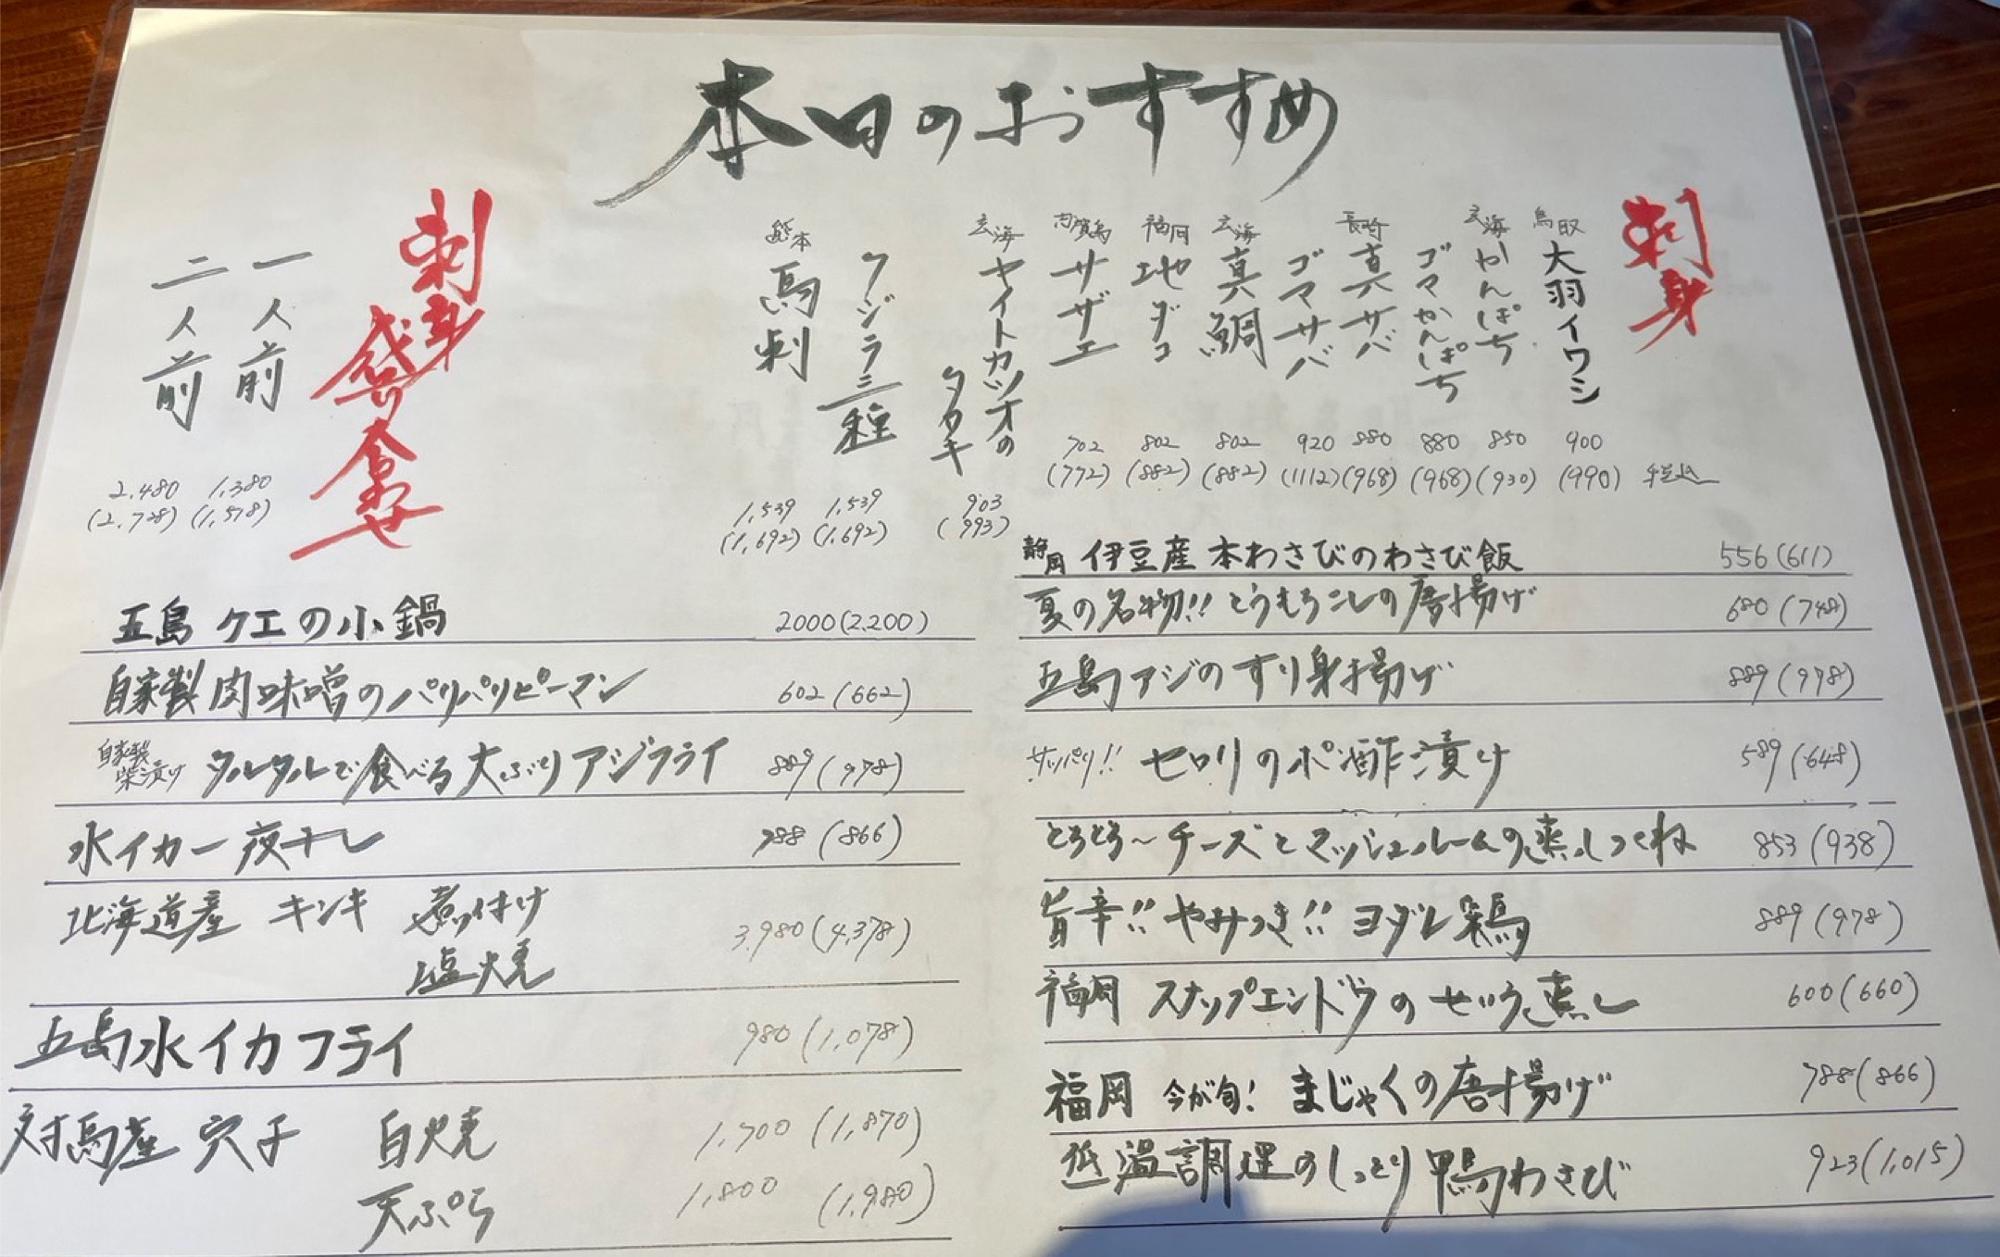 本日のおすすめ
刺身
鳥取 大羽イワシ 900 (990) 税込
玄海 かんぱち 850 (930)
ゴマかんぱち 880 (968)
長崎 真サバ 880 (968)
ゴマサバ 920 (1112)
玄海 真鯛 802 (882)
福岡 地ダコ 802 (882)
志賀島 サザエ 702 (772)
玄海 ヤイトカツオの
タタキ 903 (993)
クジラ三種 1,539 (1,692)
熊本 馬刺 1,539 (1,692)
刺身
盛合せ
一人前 1,380 (1,518)
二人前 2,480 (2,728)
静岡 伊豆産 本わさびのわさび飯 556(611)
夏の名物!! とうもろこしの唐揚げ 680 (748)
五島アジのすり身揚げ 889 (978)
サッパリ!! セロリのポン酢漬け 589 (648)
とろとろ〜チーズとマッシュルームの蒸しつくね 853 (938)
旨辛!! やみつき!! ヨダレ鶏 889 (978)
福岡 スナップエンドウのせいろ蒸し 600 (660)
福岡 今が旬! まじゃくの唐揚げ 788 (866)
低温調理のしっとり鴨わさび 923 (1,015)
五島 クエの小鍋 2000(2,200)
自家製肉味噌のパリパリピーマン 602 (662)
自家製柴漬け タルタルで食べる大ぶりアジフライ 889 (978)
水イカ一夜干し 788 (866)
北海道産 キンキ 煮付け
塩焼 3,980 (4,378)
五島水イカフライ 980 (1,078)
対馬産 穴子 白焼 1,700 (1,870)
天ぷら 1,800 (1,980)